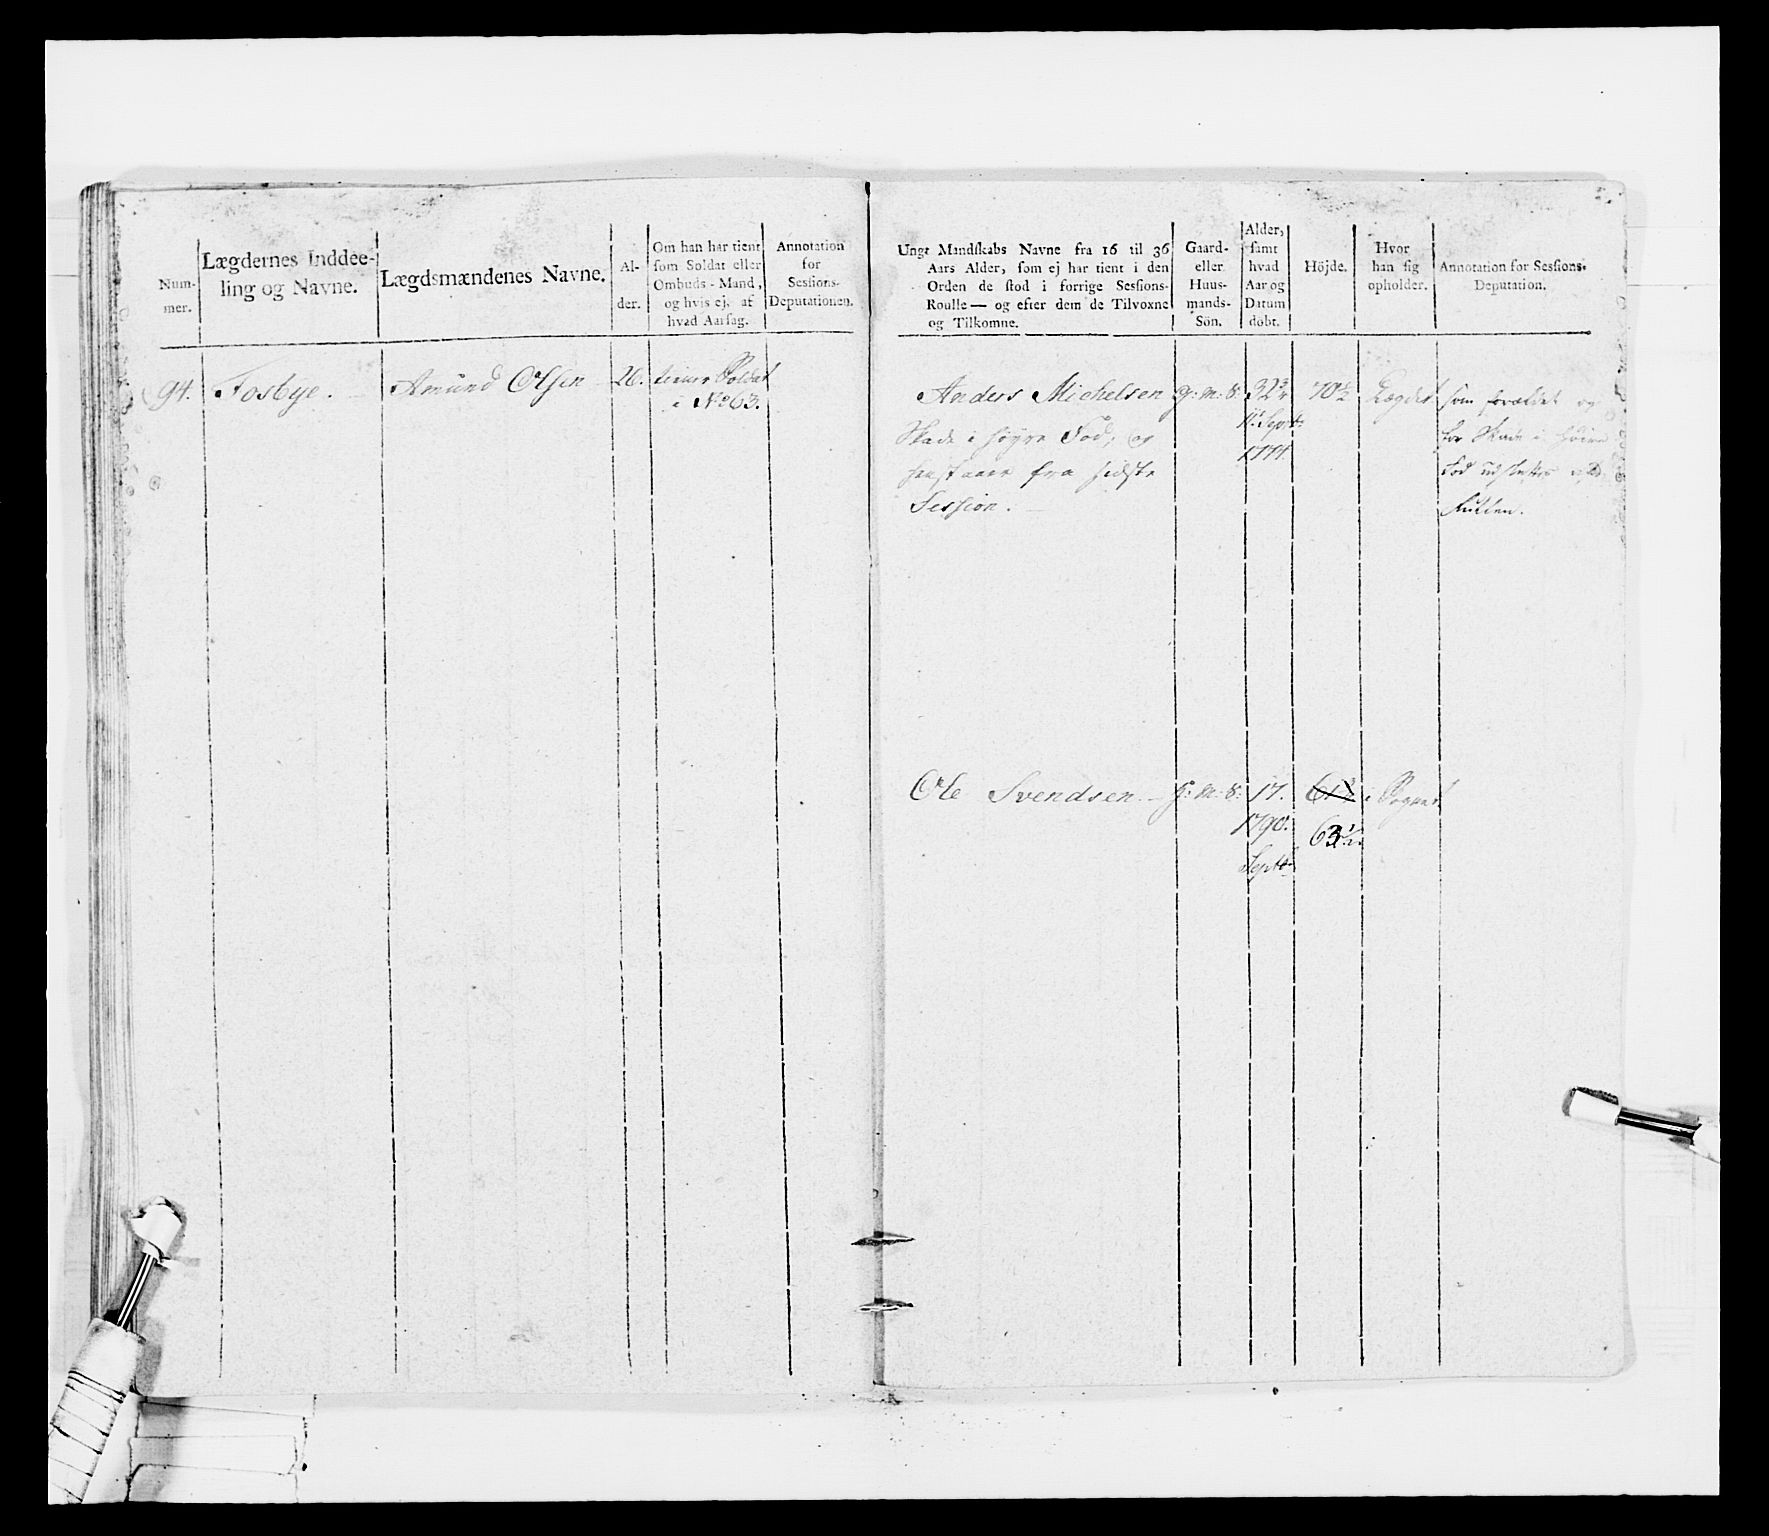 Num-
mer.
Lægdernes Inddee-
ling og Navne.
Lægdsmændenes Navne.
Al-
der.
Om han har tient
som Soldat eller
Ombuds-Mand,
og hvis ej, af
hvad Aarsag.
Annotation
for
Sessions-
Deputationen.
94.
Fosbye.
Amund Olsen
26.
tiener Soldat
i No 63.
Unge Mandskabs Navne fra 16 til 36
Aars Alder, som ej har tient i den
Orden de stod i forrige Sessions-
Roulle — og efter dem de Tilvoxne
og Tilkomne.
Gaard-
eller
Huus-
mands-
Sön.
Alder,
samt
hvad
Aar og
Datum
döbt.
Höjde.
Hvor
han sig
opholder.
Annotation for Sessions-
Deputation.
Anders Michelsen
g: m: s:
32
70½
Lægdet
som forældet og
Skade i høyre Fod, og
Septb:
for Skade i høire
fra sidste
Fod udslettes
Session.
Rullen.
Ole Svendsen.
h: m: s:
17.
i Sognet
1790.
63½
Septb: